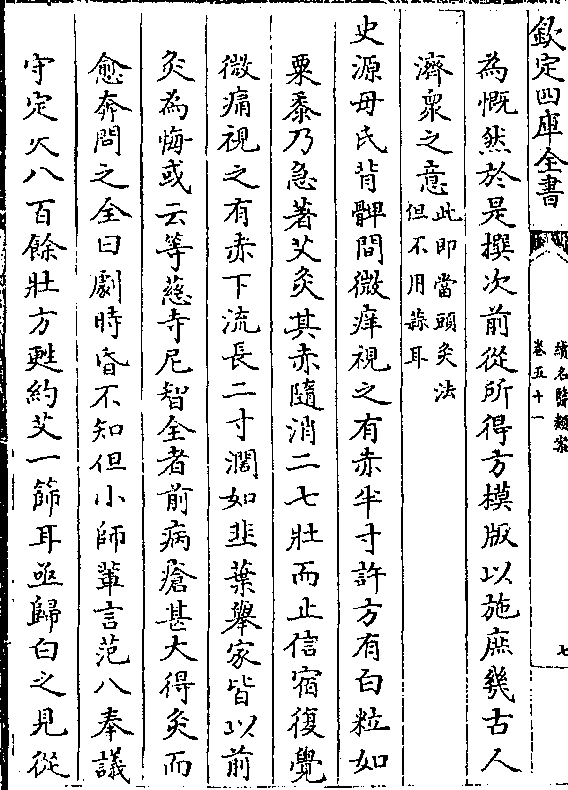 欽定四庫全書
續名醫類案
卷五十一
七
為慨然於是撰次前從所得方模版以施庶幾古人
濟衆之意此即當頭灸法
但不用蒜耳
史源母氏背髀間微痒視之有赤半寸許方有白粒如
粟黍乃急著艾灸其赤隨消二七壯而止信宿復覺
微痛視之有赤下流長二寸濶如韭葉舉家皆以前
灸為悔或云等慈寺尼智全者前病瘡甚大得灸而
愈奔問之全曰劇時昏不知但小師軰言范八奉議
守定灸八百餘壯方甦約艾一篩耳亟歸白之見從